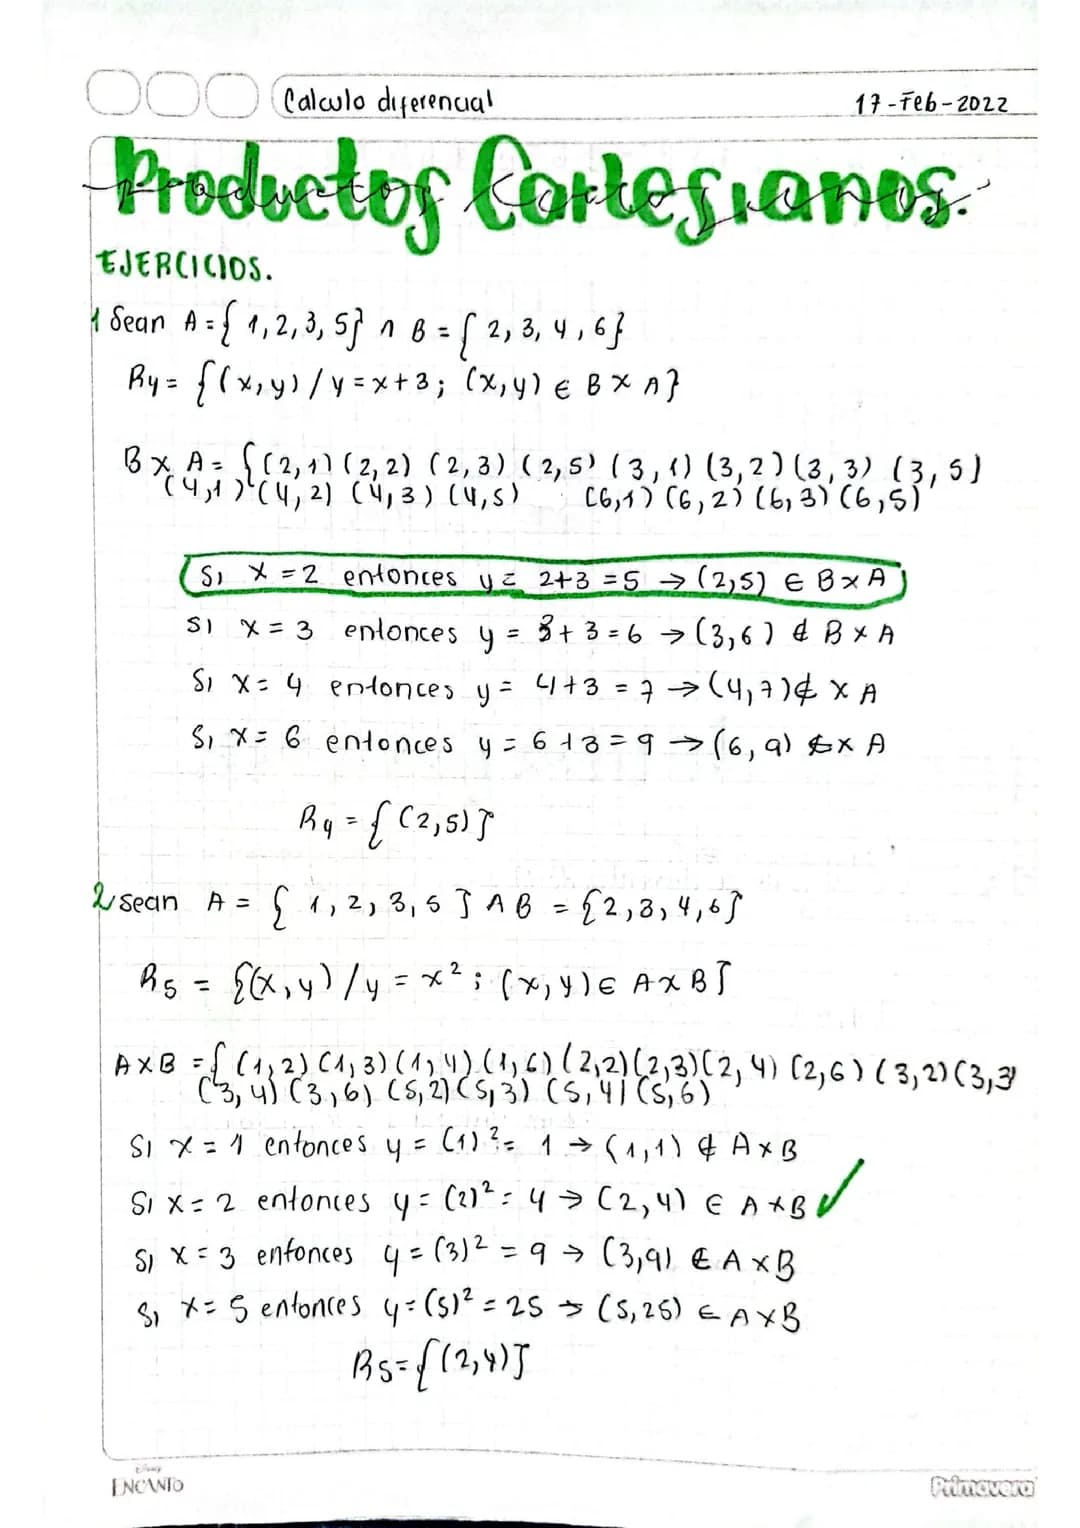 Calculo diferencial
17-Feb-2022
Productos Cartesianos.
EJERCICIOS.
1 Sean A={ 1,2,3,5} ∧ B={ 2,3,4,6}
R4= {(x,y)/y=x+3; (x,y) ∈ B×A}
B×A= {(2,1)(2,2) (2,3)(2,5) (3,1)(3,2)(3,3) (3,5)
(4,1)(4,2)(4,3)(4,5) (6,1)(6,2)(6,3)(6,5)
Si x=2 entonces y= 2+3=5 → (2,5) ∈ B×A
Si x=3 entonces y= 3+3=6 → (3,6) ∉ B×A
Si x=4 entonces y= 4+3=7 → (4,7)∉ ×A
Si x=6 entonces y=6+3=9 → (6,9) ∉× A
R4={(2,5)}
2 Sean A= { 1,2,3,5} ∧ B={2,3,4,6}
R5= {(x,y)/y=x²; (x,y)∈ A×B}
A×B={ (1,2)(1,3)(1,4)(1,6)(2,2)(2,3)(2,4)(2,6)(3,2)(3,3)
(3,4)(3,6)(5,2)(5,3)(5,4)(5,6)
Si x=1 entonces y=(1)²= 1 → (1,1) ∉ A×B
Si x=2 entonces y=(2)²=4 → (2,4) ∈ A×B ✓
Si x=3 entonces y=(3)²=9 → (3,9) ∉ A×B
Si x=5 entonces y=(5)²=25 → (5,25) ∈ A×B
R5={(2,4)}
Disney
ENCANTO
Primavera